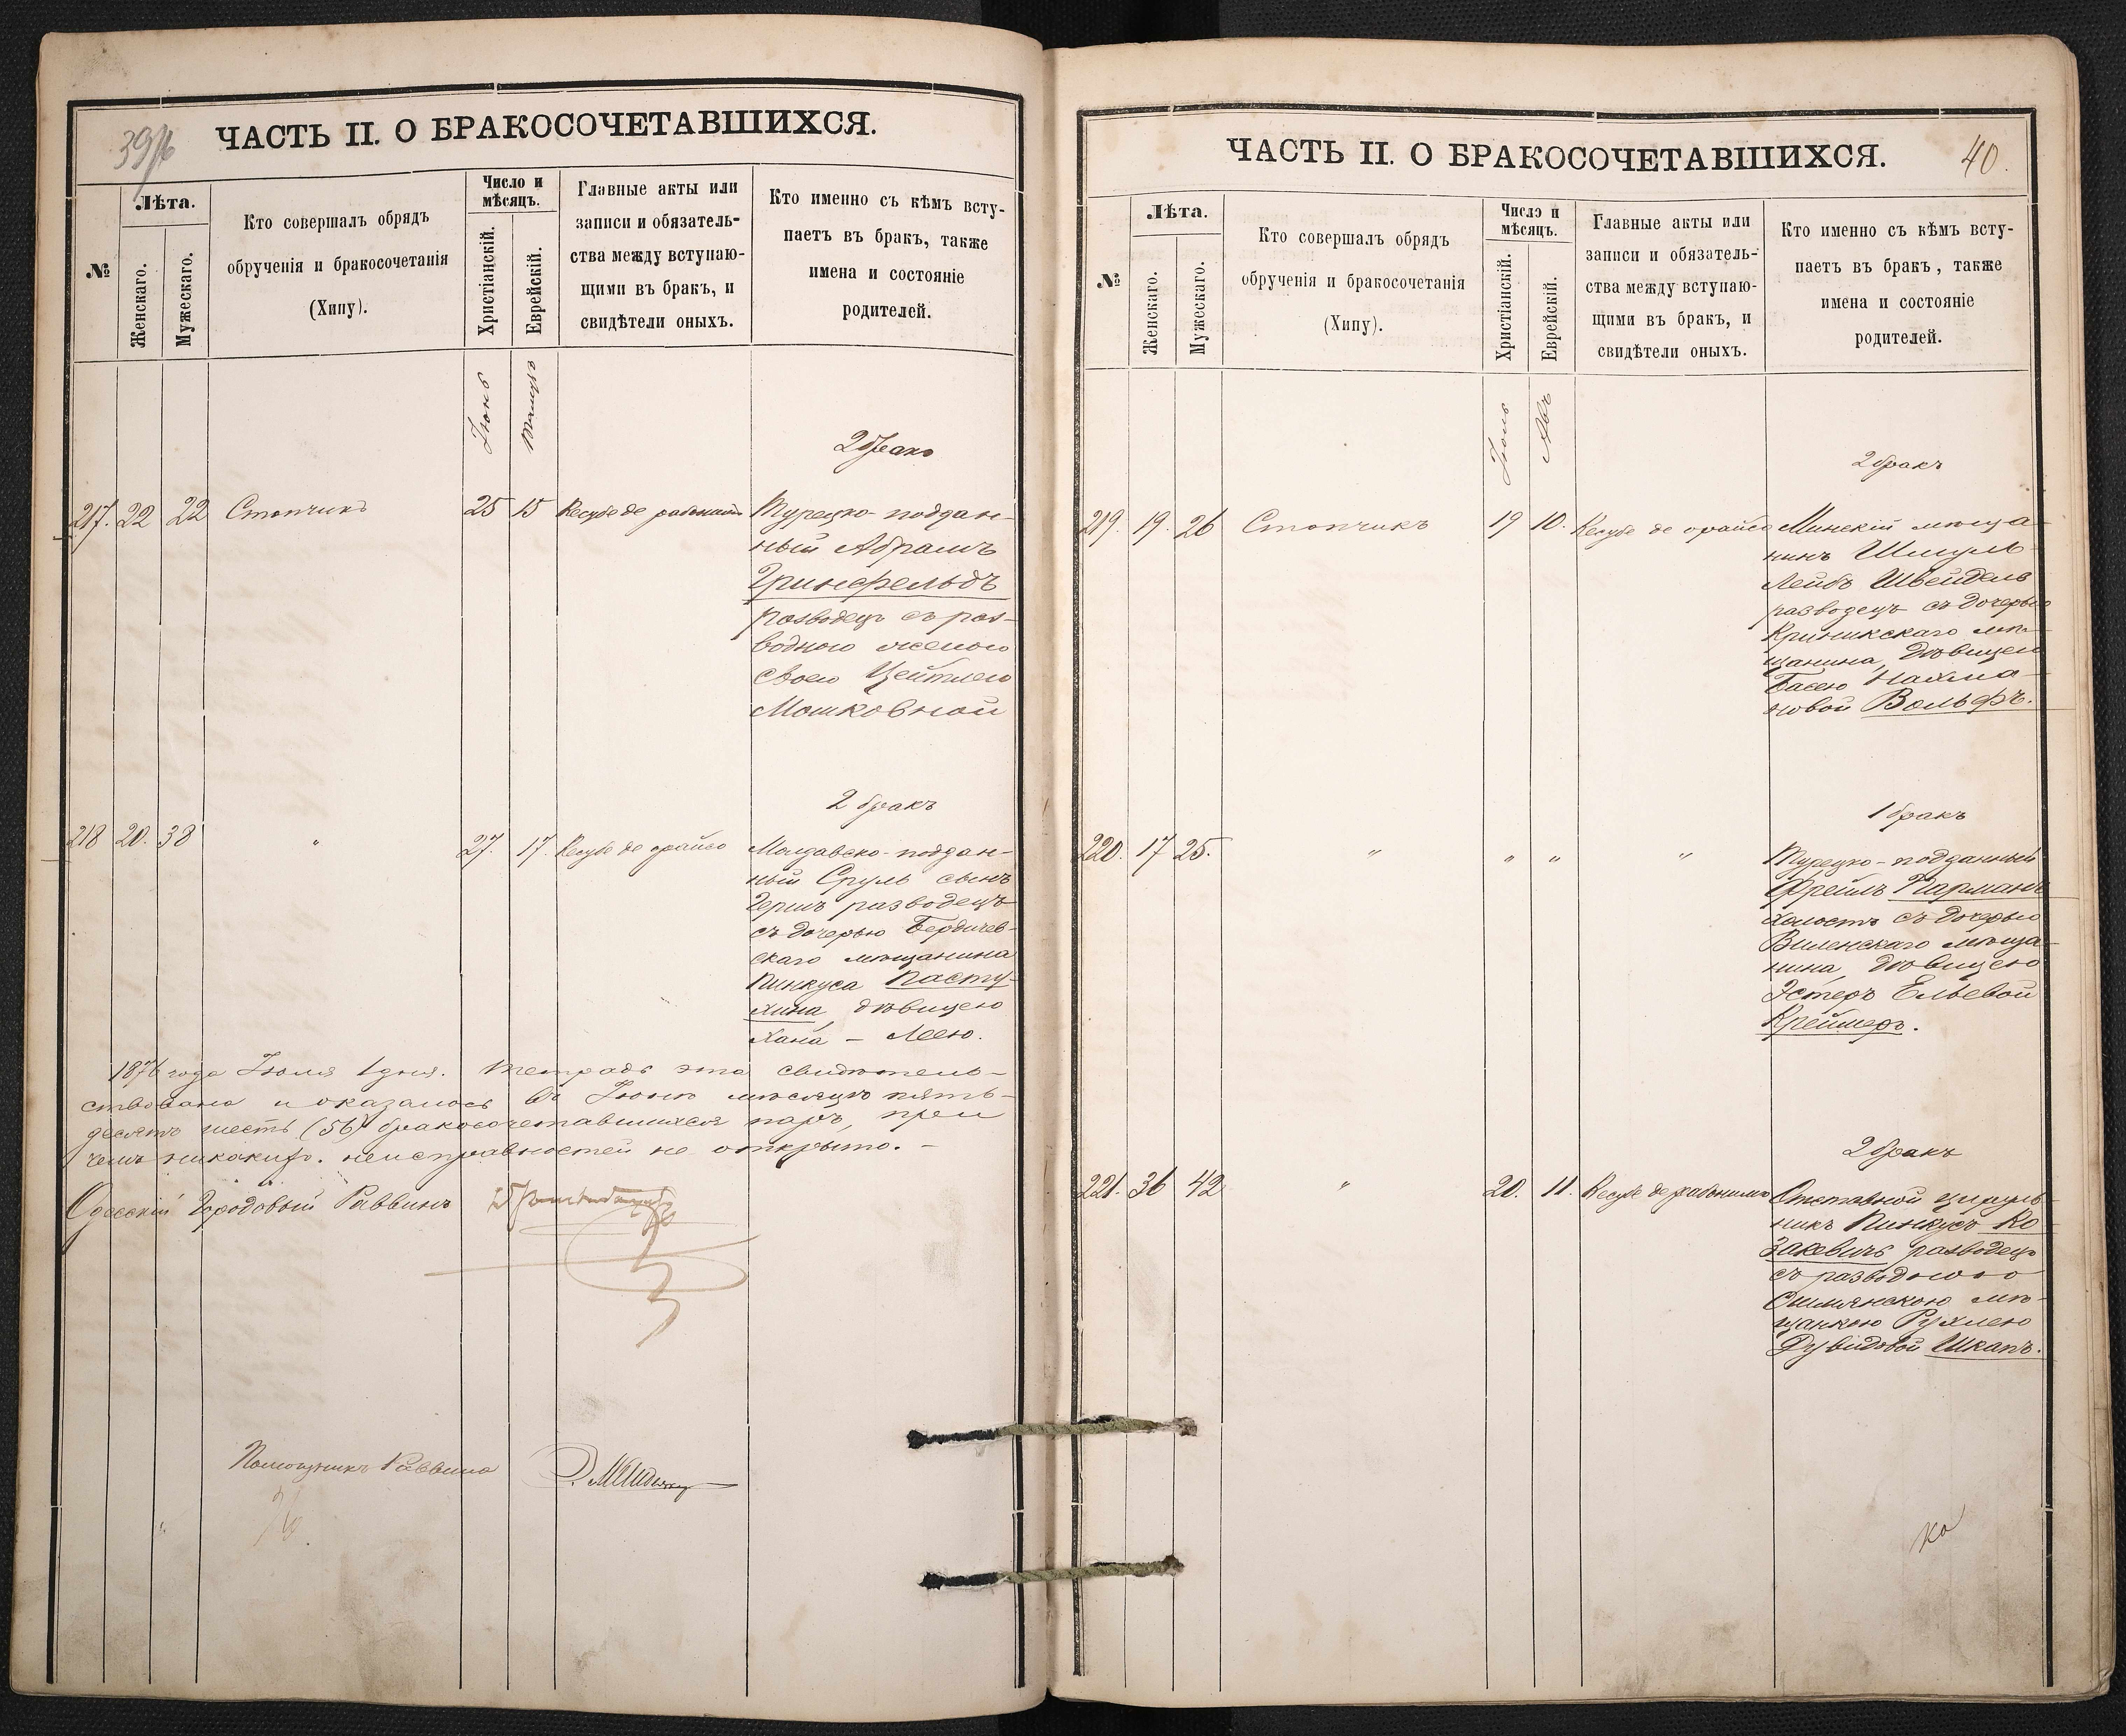 39
ЧАСТЬ II. О БРАКОСОЧЕТАВШИХСЯ.
№
Лѣта.
Женскаго.
Мужескаго.
Кто совершалъ обрядъ
обрученія и бракосочетанія
(Хипу).
Число и
мѣсяцъ.
Христіанскій.
Еврейскій.
Главные акты или
записи и обязатель-
ства между вступаю-
щими въ бракъ, и
свидѣтели оныхъ.
Кто именно съ кѣмъ всту-
паетъ въ бракъ, также
имена и состояніе
родителей.
Іюнь
Тамузъ
2 бракъ
217. 22 22 Стопчикъ 25 15 Кесубе де рабонимъ Турецко-поддан-
ный Абрамъ
Гринфельдъ
разводецъ съ раз-
водною женою
своею Цейтлею
Мошковной
2 бракъ
218 20. 38 " 27. 17. Кесубе де орайсо Молдавско-поддан-
ный Сруль сынъ
Герша разводецъ
съ дочерью Бердичев-
скаго мѣщанина
Пинкуса Пасту-
хина, дѣвицею
Хана - Леею.
1876 года Іюля 1 дня. Тетрадь эта свидѣтель-
ствована и оказалось въ Іюнѣ мѣсяцѣ пять-
десятъ шесть (56) бракосочетавшихся паръ, при
чемъ никакихъ неисправностей не открыто. -
Одесскій Городовый Раввинъ
Помощникъ Раввина
ЧАСТЬ II. О БРАКОСОЧЕТАВШИХСЯ.
40.
№
Лѣта.
Женскаго.
Мужескаго.
Кто совершалъ обрядъ
обрученія и бракосочетанія
(Хипу).
Число и
мѣсяцъ.
Христіанскій.
Еврейскій.
Главные акты или
записи и обязатель-
ства между вступаю-
щими въ бракъ, и
свидѣтели оныхъ.
Кто именно съ кѣмъ всту-
паетъ въ бракъ, также
имена и состояніе
родителей.
Іюль
Авъ
2 бракъ
219. 19. 26 Стопчикъ 19 10. Кесубе де орайсо Минскій мѣща-
нинъ Шмуль-
Лейбъ Швейдель
разводецъ съ дочерью
Криникскаго мѣ-
щанина, дѣвицей
Басею Нахма-
новой Вольфъ.
1 бракъ
220. 17 25. " " " " Турецко-подданный
Фреимъ Парманъ
холостъ съ дочерью
Виленскаго мѣща-
нина, дѣвицею
Эстеръ Ельевой
Креймеръ.
2 бракъ
221. 36 42 " 20. 11. Кесубе де рабонимъ Отставной цируль-
никъ Пинкусъ Ко-
закевичъ разводецъ
съ разводною
Ошмянскою мѣ-
щанкою Рухлею
Дувидовой Шкапъ.